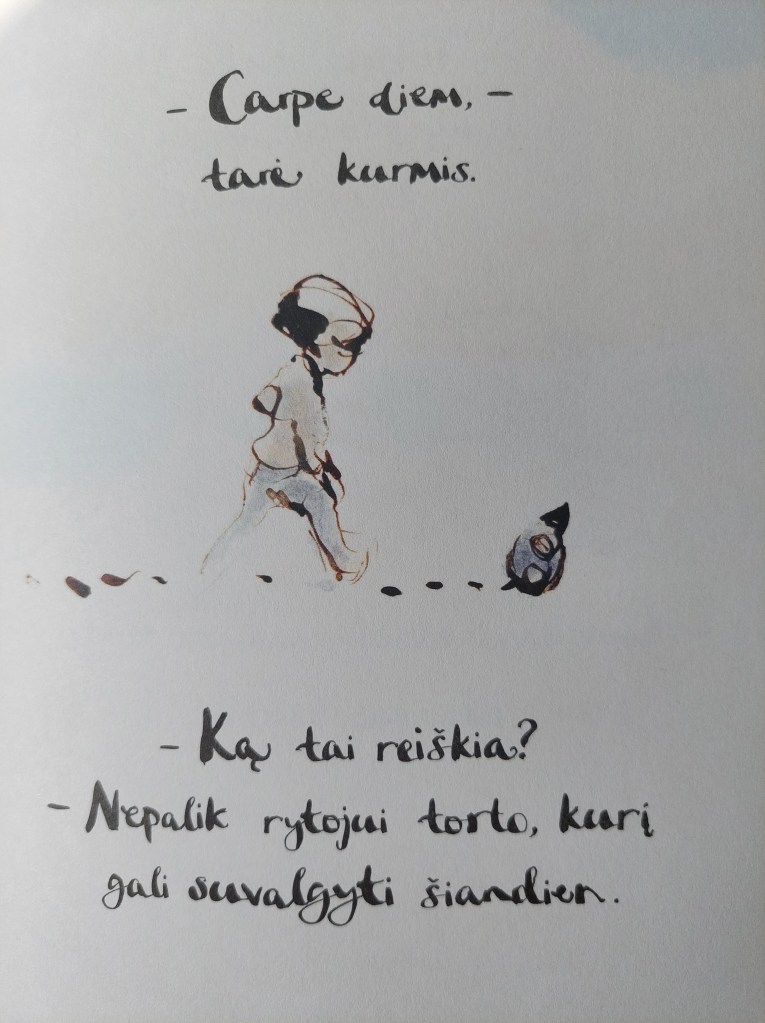 - Carpe diem, -
tarė kurmis.
- Ką tai reiškia?
- Nepalik rytojui torto, kurį
gali suvalgyti šiandien.